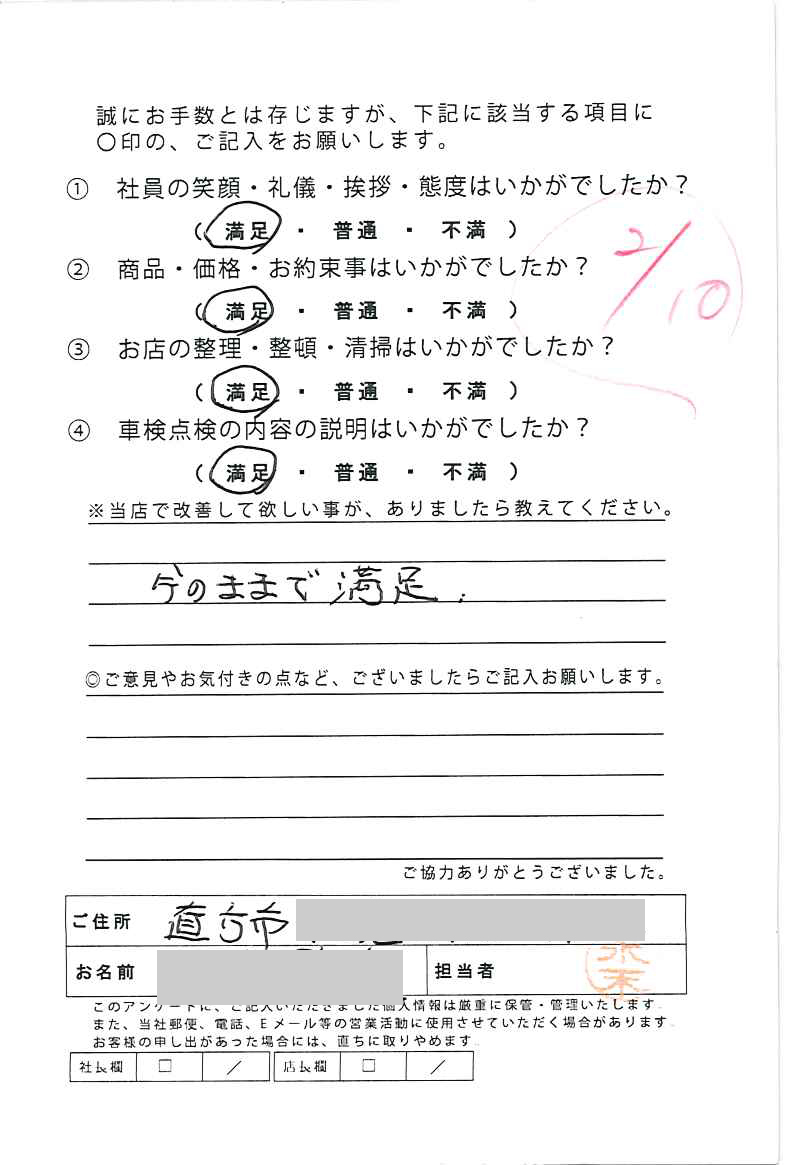 誠にお手数とは存じますが、下記に該当する項目に
〇印の、ご記入をお願いします。
① 社員の笑顔・礼儀・挨拶・態度はいかがでしたか？
（ 満足 ・ 普通 ・ 不満 ）
2/10
② 商品・価格・お約束事はいかがでしたか？
（ 満足 ・ 普通 ・ 不満 ）
③ お店の整理・整頓・清掃はいかがでしたか？
（ 満足 ・ 普通 ・ 不満 ）
④ 車検点検の内容の説明はいかがでしたか？
（ 満足 ・ 普通 ・ 不満 ）
※当店で改善して欲しい事が、ありましたら教えてください。
今のままで満足.
◎ご意見やお気付きの点など、ございましたらご記入お願いします。
ご協力ありがとうございました。
ご住所 直方市
お名前 担当者
このアンケートに、ご記入いただきました個人情報は厳重に保管・管理いたします.
また、当社郵便、電話、Eメール等の営業活動に使用させていただく場合があります.
お客様の申し出があった場合には、直ちに取りやめます.
社長欄 □ ／ 店長欄 □ ／